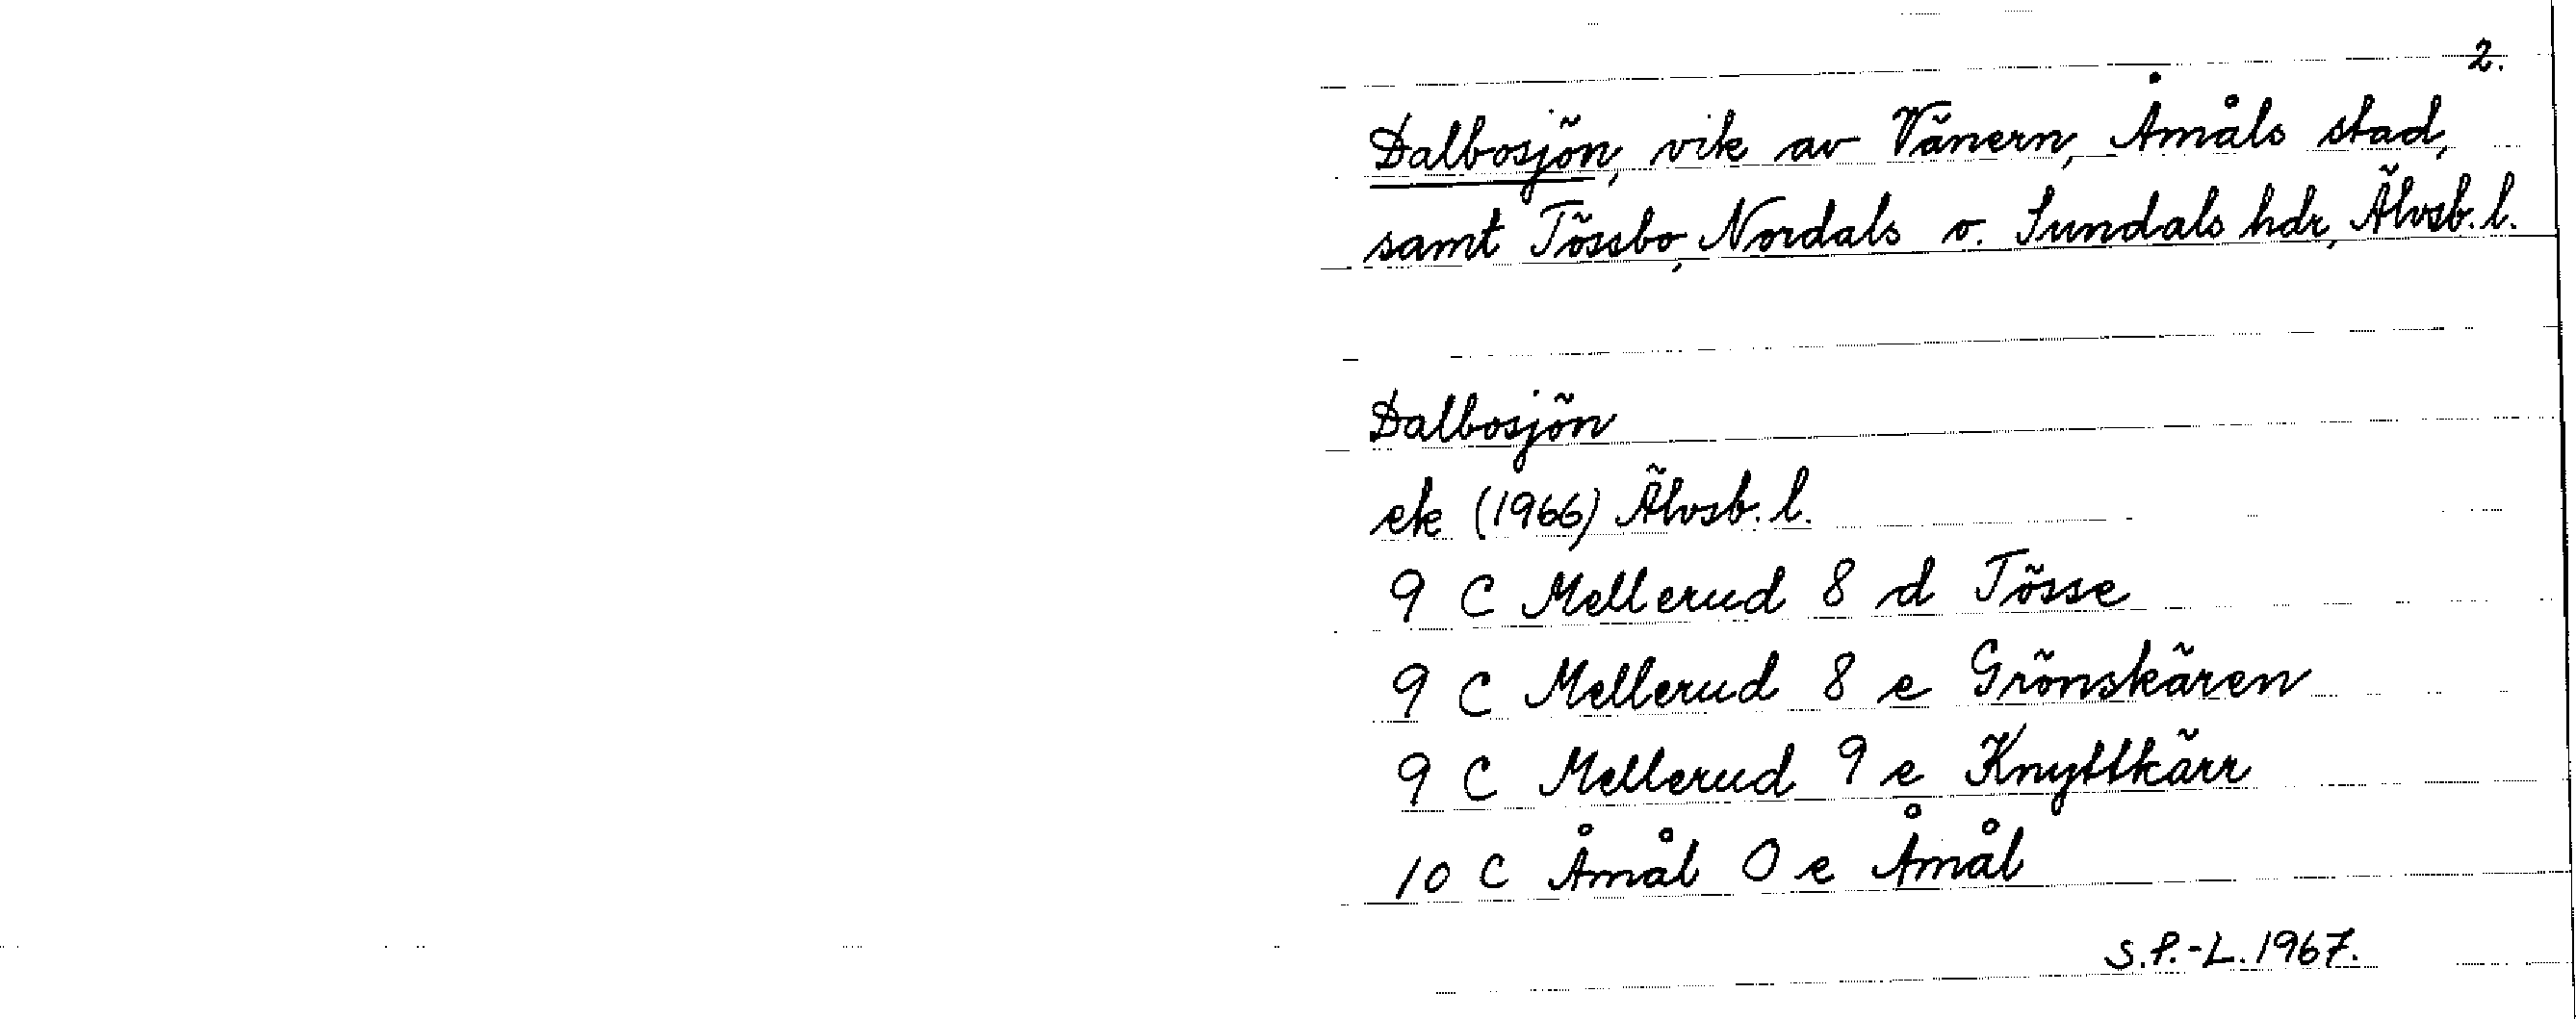 2.
Dalbosjön, vik av Vänern, Åmåls stad,
samt Tössbo, Nordals o. Sundals hdr, Älvsb. l.
Dalbosjön
ek (1966) Älvsb. l.
9 C Mellerud 8 d Tösse
9 C Mellerud 8 e Grönskären
9 C Mellerud 9 e Knyttkärr
10 C Åmål 0 e Åmål
S.P.-L. 1967.